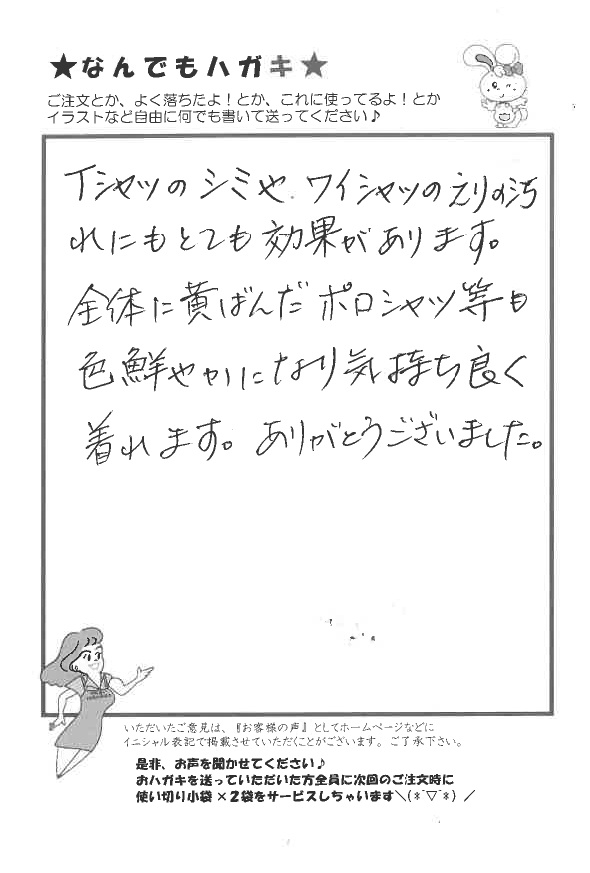 ★なんでもハガキ★
ご注文とか、よく落ちたよ！とか、これに使ってるよ！とか
イラストなど自由に何でも書いて送ってください♪
Tシャツのシミや、ワイシャツのえりの汚
れにもとても効果があります。
全体に黄ばんだポロシャツ等も
色鮮やかになり気持ち良く
着れます。ありがとうございました。
いただいたご意見は、『お客様の声』としてホームページなどに
イニシャル表記で掲載させていただくことがございます。ご了承下さい。
是非、お声を聞かせてください♪
おハガキを送っていただいた方全員に次回のご注文時に
使い切り小袋×2袋をサービスしちゃいます＼(*´▽`*)／